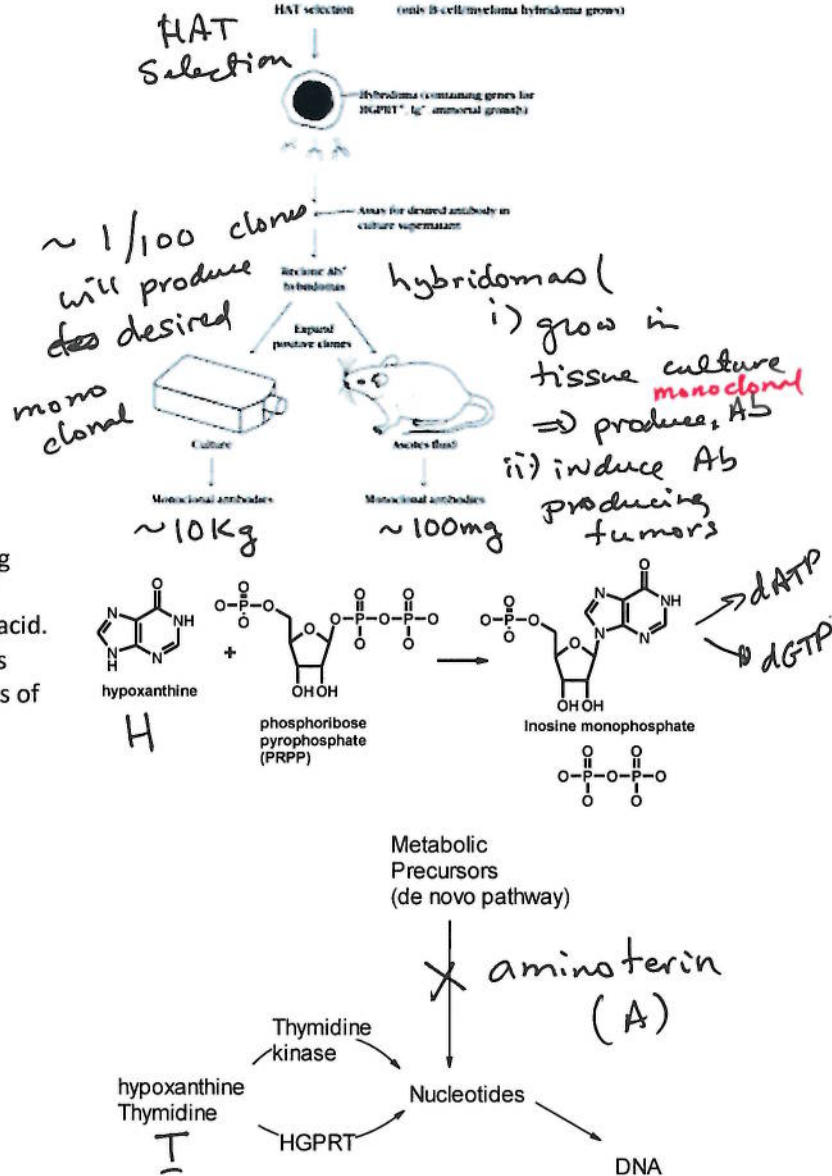 HAT selection (only B-cell/myeloma hybridoma grows)
HAT
Selection
Hybridoma (containing genes for
HGPRT⁺, Ig⁺, immortal growth)
Assay for desired antibody in
culture supernatant
~ 1/100 clones
will produce
desired
Reclone Ab⁺
hybridomas
Expand
positive clones
hybridomas (
i) grow in
tissue culture
monoclonal
⇒ produce, Ab
ii) induce Ab
producing
tumors
mono
clonal
Culture
Ascites fluid
Monoclonal antibodies
Monoclonal antibodies
~10Kg
~100mg
g
acid.
s
s of
hypoxanthine
H
+
phosphoribose
pyrophosphate
(PRPP)
Inosine monophosphate
dATP
dGTP
Metabolic
Precursors
(de novo pathway)
aminoterin
(A)
Thymidine
kinase
hypoxanthine
Thymidine
T
HGPRT
Nucleotides
DNA